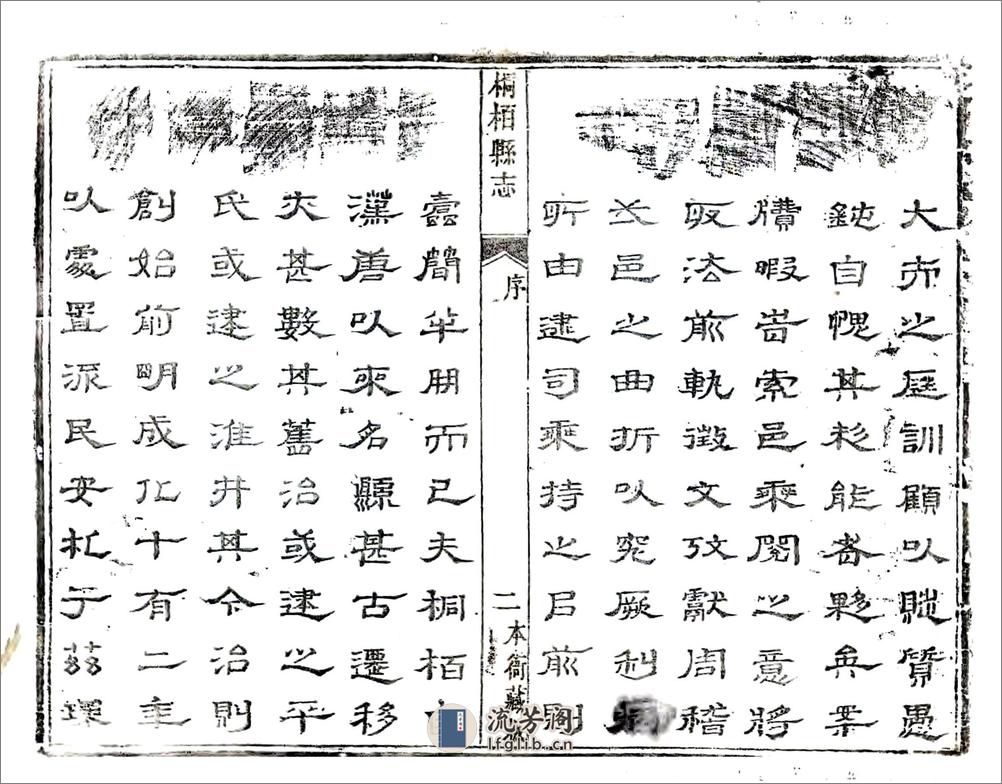 大之庭訓顧以質愚
鈍自愧其能者夥矣
牘暇旹索邑乘閱之意將
取法前軌徵文攷獻周稽
茲邑之曲折以究厥利
所由建司乘持之㠯前則
桐栢縣志
序
二
本衙藏
蠹簡半朋而已夫桐栢
漢唐以來名縣甚古遷移
亦甚數其舊治或建之平
氏或建之淮井其今治則
創始前明成化十有二年
以處置流民安札于茲環
流芳閣
lfglib.cn